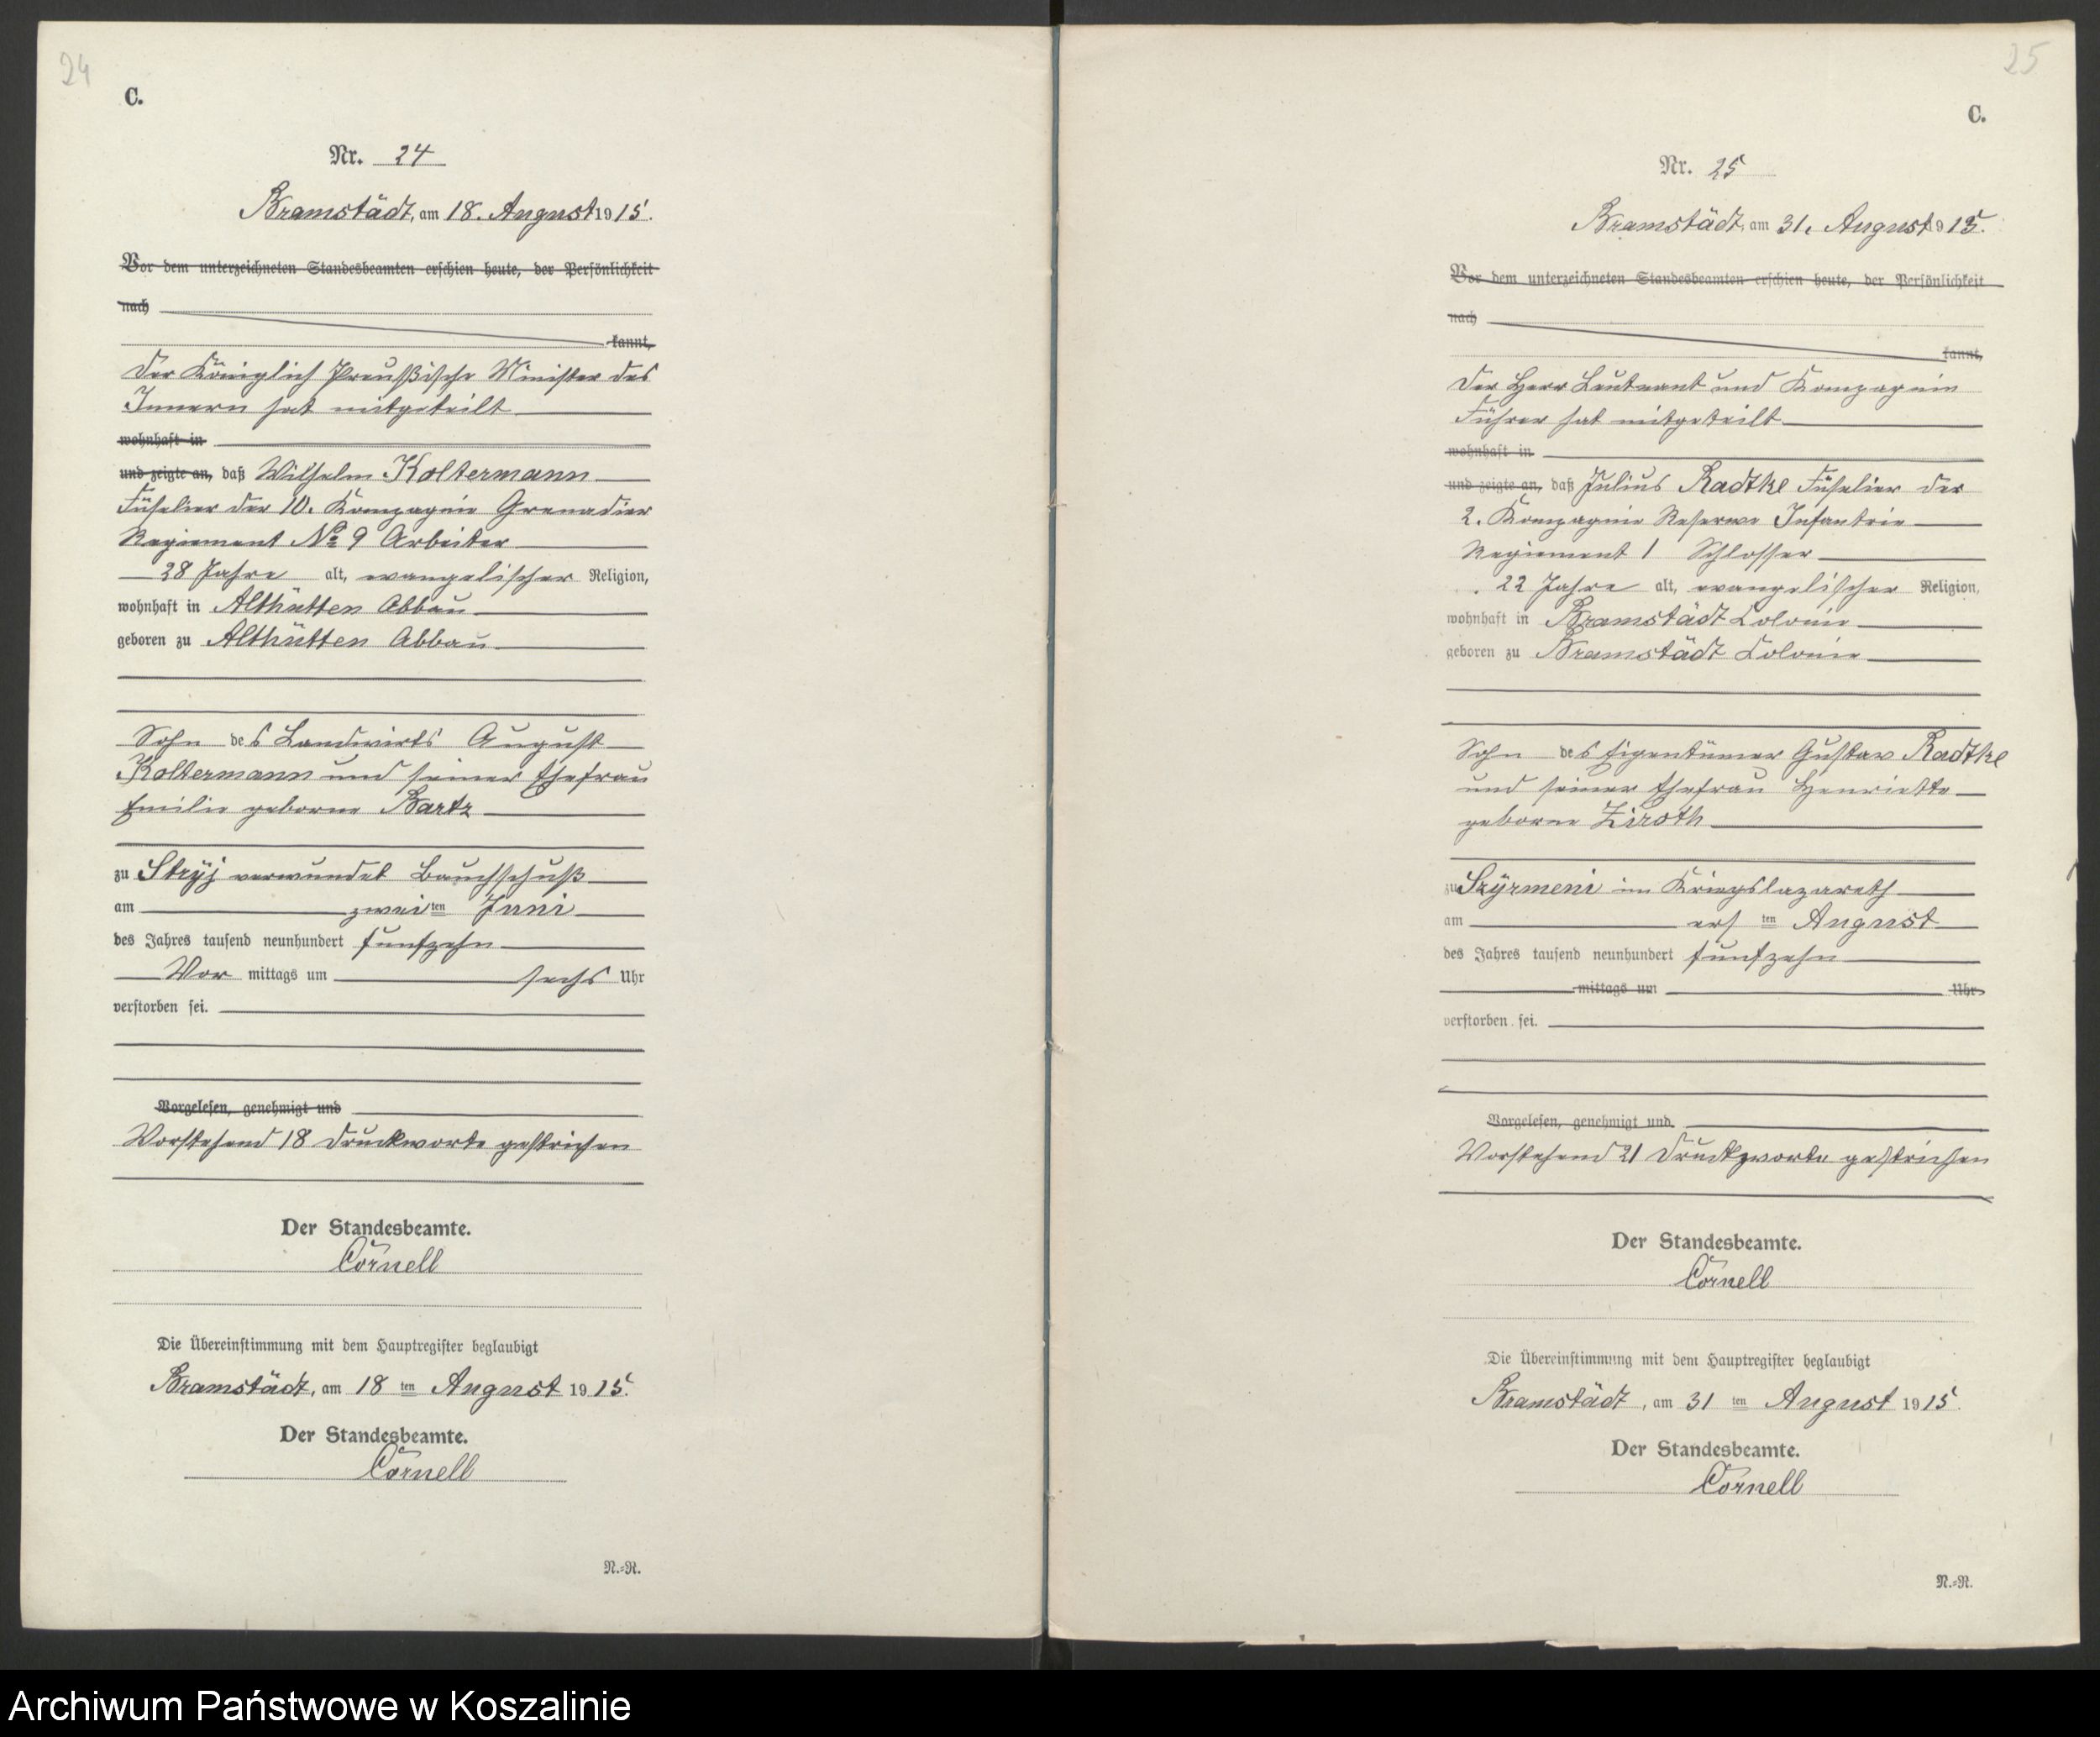 24
C.
Nr. 24
Bramstädt, am 18. August 1915.
Vor dem unterzeichneten Standesbeamten erschien heute, der Persönlichkeit
nach
kannt,
Der Königlich Preußische Minister des
Innern hat mitgeteilt
wohnhaft in
und zeigte an, daß Wilhelm Koltermann
Füselier der 10. Kompagnie Grenadier
Regiement No 9 Arbeiter
28 Jahre alt, evangelischer Religion,
wohnhaft in Althütten Abbau
geboren zu Althütten Abbau
Sohn des Landwirts August
Koltermann und seiner Ehefrau
Emilie geborne Bartz
zu Stryj verwundet Bauchschuß
am zweiten Juni
des Jahres tausend neunhundert funfzehn
Vor mittags um sechs Uhr
verstorben sei.
Vorgelesen, genehmigt und
Vorstehend 18 Druckworte gestrichen
Der Standesbeamte.
Cornell
Die Übereinstimmung mit dem Hauptregister beglaubigt
Bramstädt, am 18 ten August 1915.
Der Standesbeamte.
Cornell
N.=R.
25
C.
Nr. 25
Bramstädt, am 31. August 1915.
Vor dem unterzeichneten Standesbeamten erschien heute, der Persönlichkeit
nach
kannt,
Der Herr Leutnant und Kompagnie
Führer hat mitgeteilt
wohnhaft in
und zeigte an, daß Julius Radtke Füselier der
2. Kompagnie Reserve Infantrie
Regiement 1 Schlosser
22 Jahre alt, evangelischer Religion,
wohnhaft in Bramstädt Colonie
geboren zu Bramstädt Colonie
Sohn des Eigentümer Gustav Radtke
und seiner Ehefrau Henriette
geborne Ziroth
zu Szyrmeni im Kriegslazareth
am ersten August
des Jahres tausend neunhundert funfzehn
mittags um Uhr
verstorben sei.
Vorgelesen, genehmigt und
Vorstehend 21 Druckworte gestrichen
Der Standesbeamte.
Cornell
Die Übereinstimmung mit dem Hauptregister beglaubigt
Bramstädt, am 31 ten August 1915.
Der Standesbeamte.
Cornell
N.=R.
Archiwum Państwowe w Koszalinie